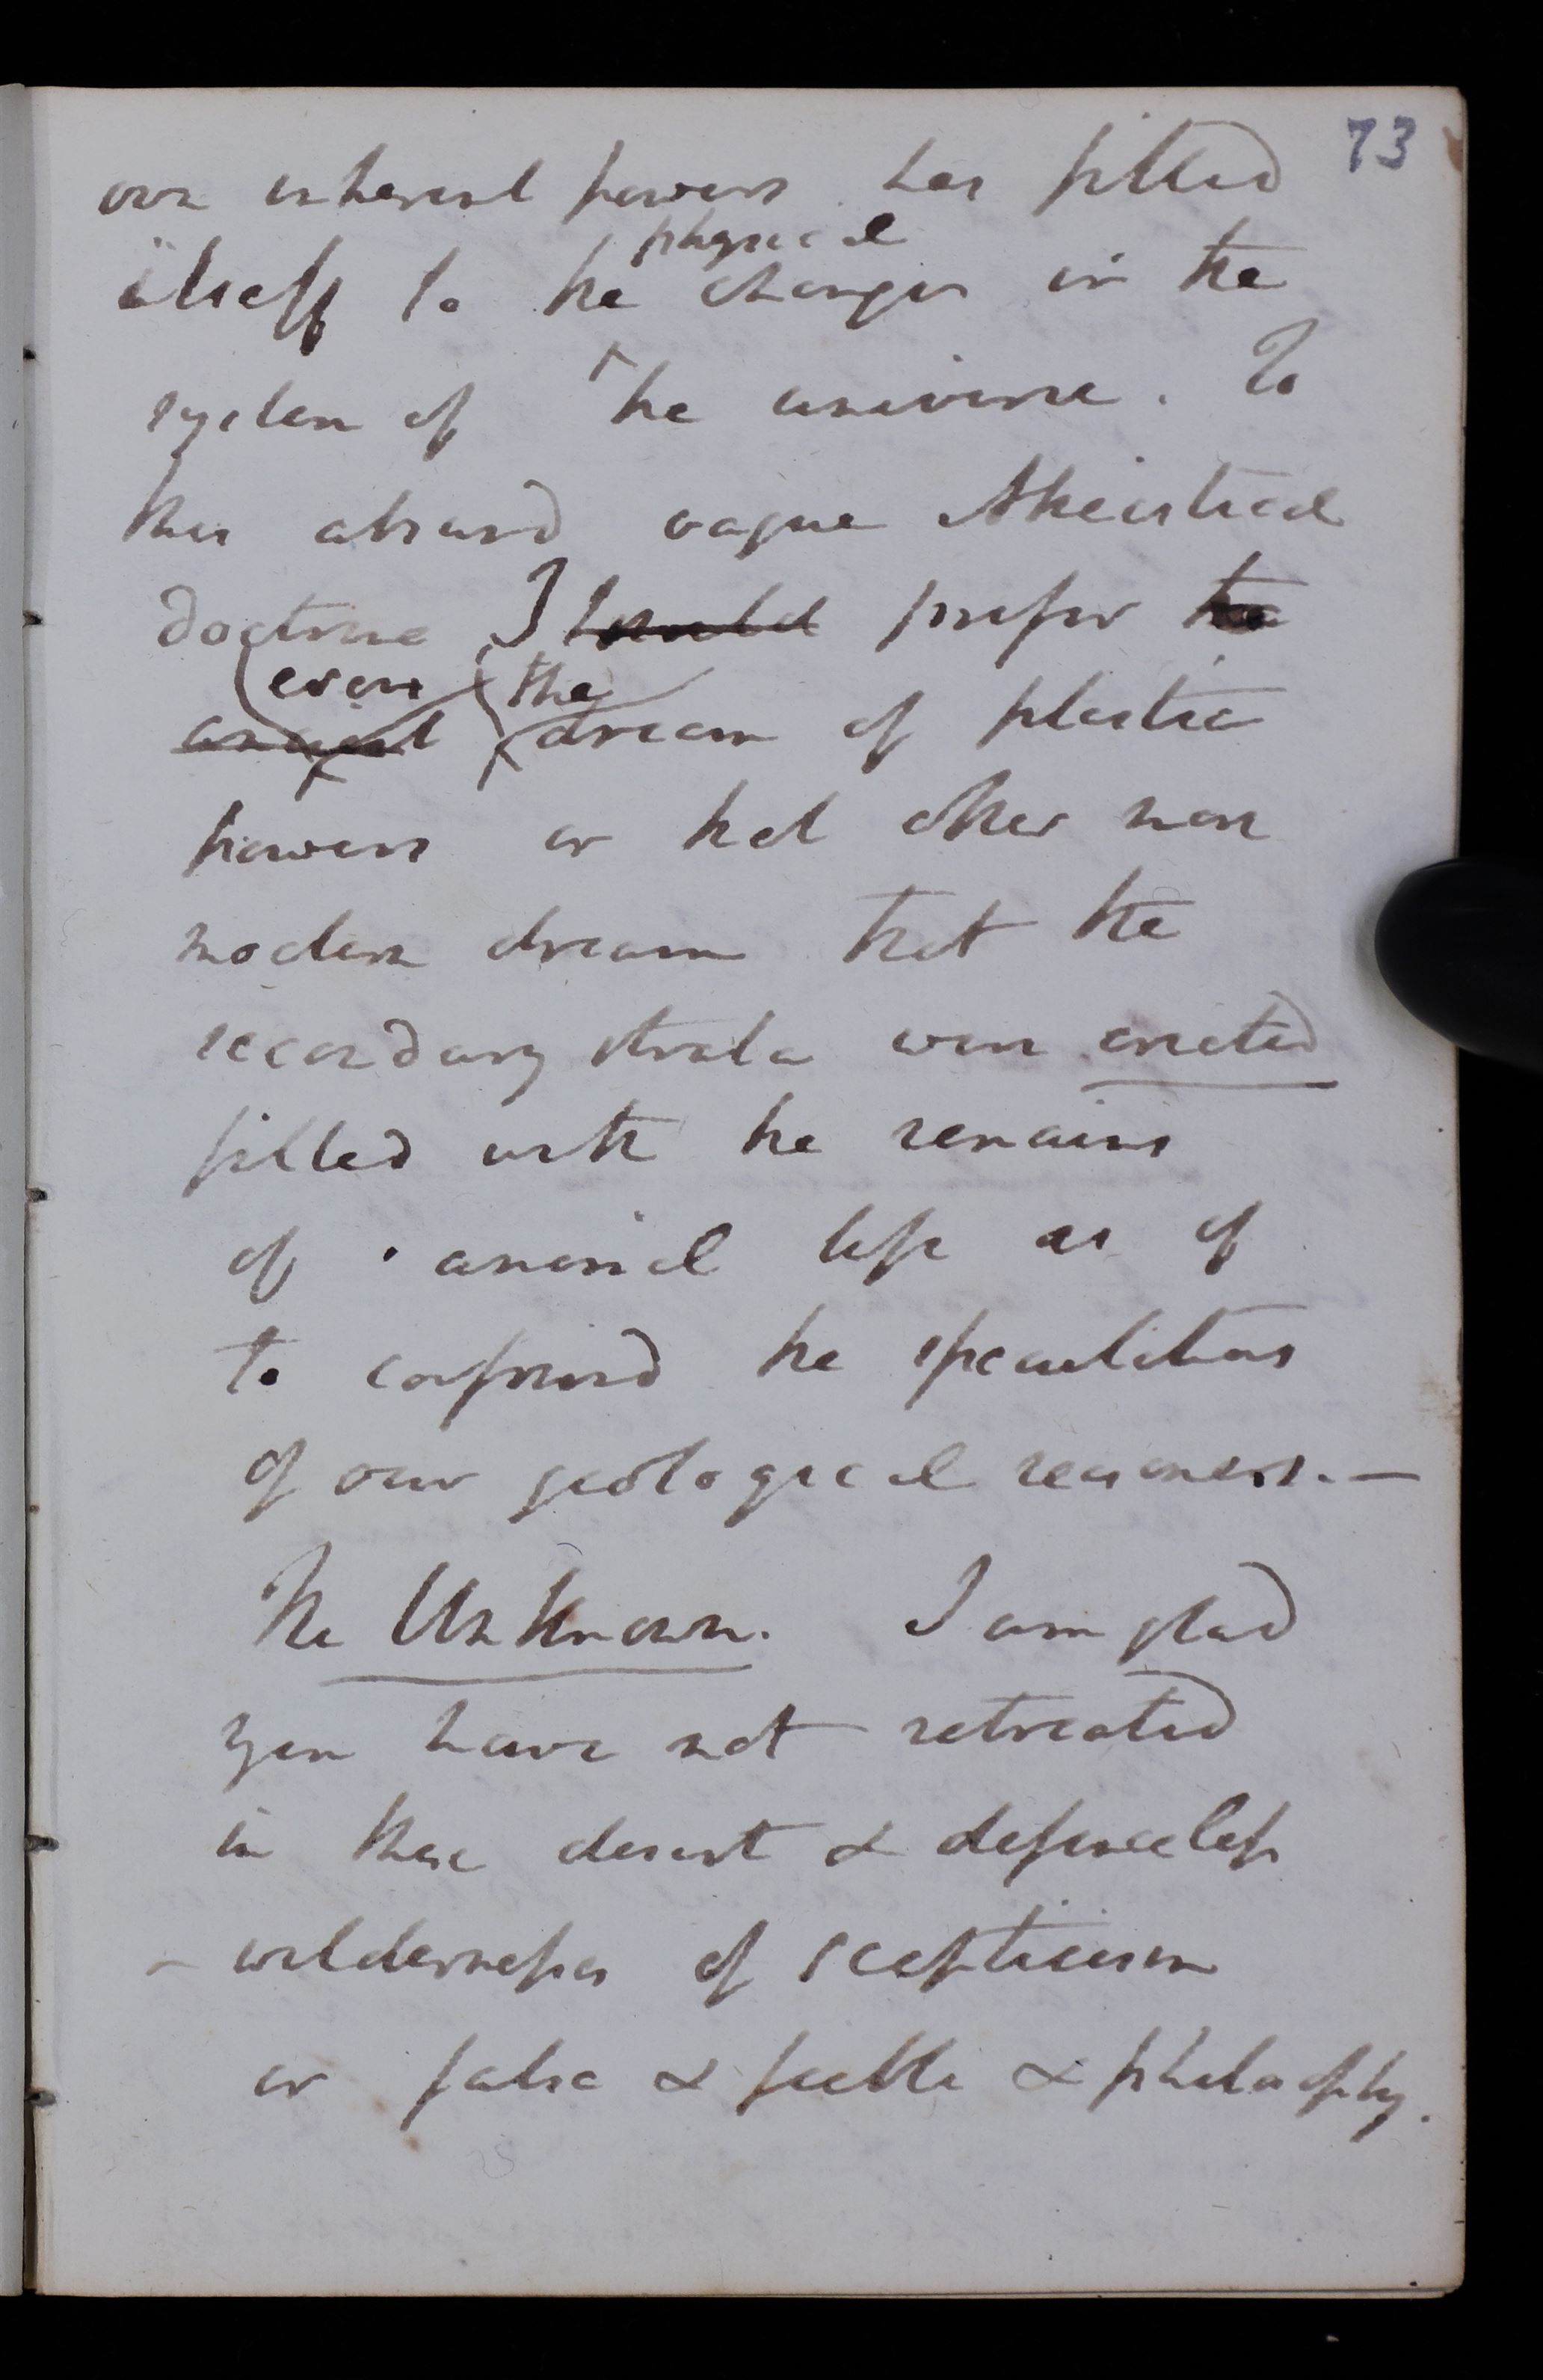 73
own inherent powers has fitted
itself to the physical changes in the
system of the universe. To
this absurd vague Atheistical
doctrine I should prefer the
even the
ancient dream of plastic
powers or that other more
modern dream that the
secondary strata were created
filled with the remains
of animal life as if
to confound the speculations
of our geological reasoners. —
The Unknown. I am glad
you have not retreated
in these desert & defenceless
- wildernesses of scepticism
or false & feeble & philosophy.